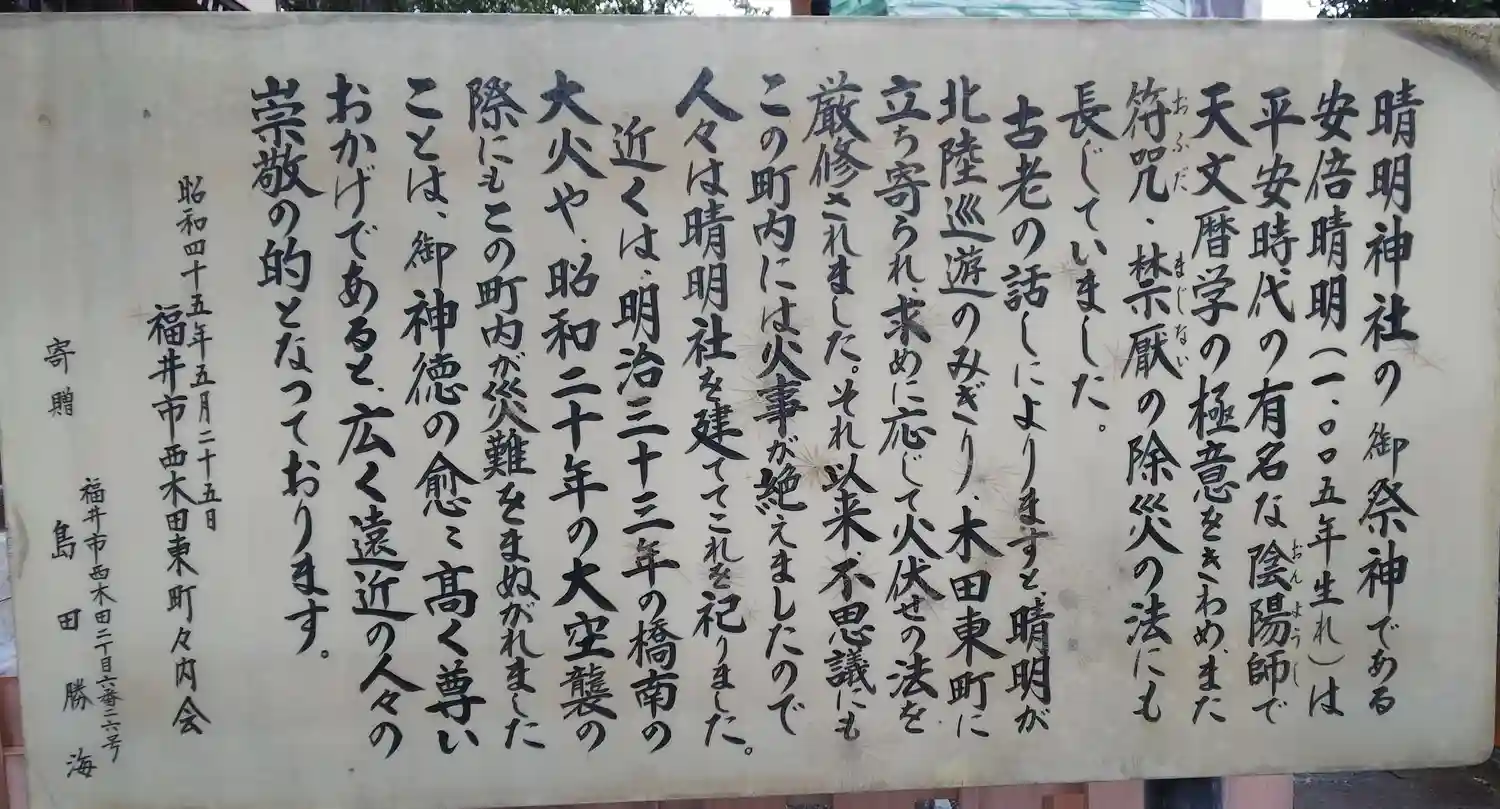 晴明神社の御祭神である
安倍晴明(一、〇〇五年生れ)は
平安時代の有名な陰陽師で
おんようし
天文暦学の極意をきわめ、また
符咒、禁厭の除災の法にも
おふだ まじない
長じていました。
古老の話しによりますと、晴明が
北陸巡遊のみぎり、木田東町に
立ち寄られ、求めに応じて火伏せの法を
厳修されました。それ以来、不思議にも
この町内には火事が絶えましたので
人々は晴明社を建ててこれを祀りました。
近くは、明治三十三年の橋南の
大火や、昭和二十年の大空襲の
際にもこの町内が災難をまぬがれました
ことは、御神徳の愈々高く尊い
おかげであると、広く遠近の人々の
崇敬の的となつております。
昭和四十五年五月二十五日
福井市西木田東町々内会
福井市西木田二丁目六番二六号
寄贈 島田勝海